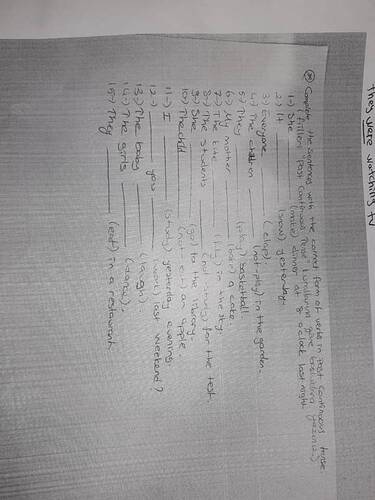 they were watching TV
Complete the sentences with the correct form of verbs in past continuous tense
(Fiilleri "Past Continuous Tense" kurallarına göre boşluklara yazınız)
1-) She ______ (make) dinner at 8 o'clock last night.
2-) It ______ (snow) yesterday.
3-) Everyone ______ (clap).
4-) The children ______ (not-play) in the garden.
5-) They ______ (play) basketball.
6-) My mother ______ (bake) a cake.
7-) The kite ______ (fly) in the sky.
8-) The students ______ (not-study) for the test.
9-) She ______ (go) to the library.
10-) The child ______ (not-eat) an apple.
11-) I ______ (study) yesterday evening.
12-) ______ you ______ (work) last weekend?
13-) The baby ______ (laugh).
14-) The girls ______ (dance).
15-) They ______ (eat) in a restaurant.